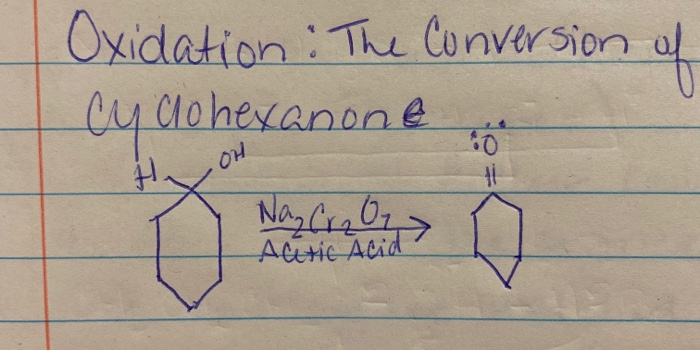 Oxidation: The Conversion of
Cyclohexanone
H OH
Na2Cr2O7
Acetic Acid
:Ö